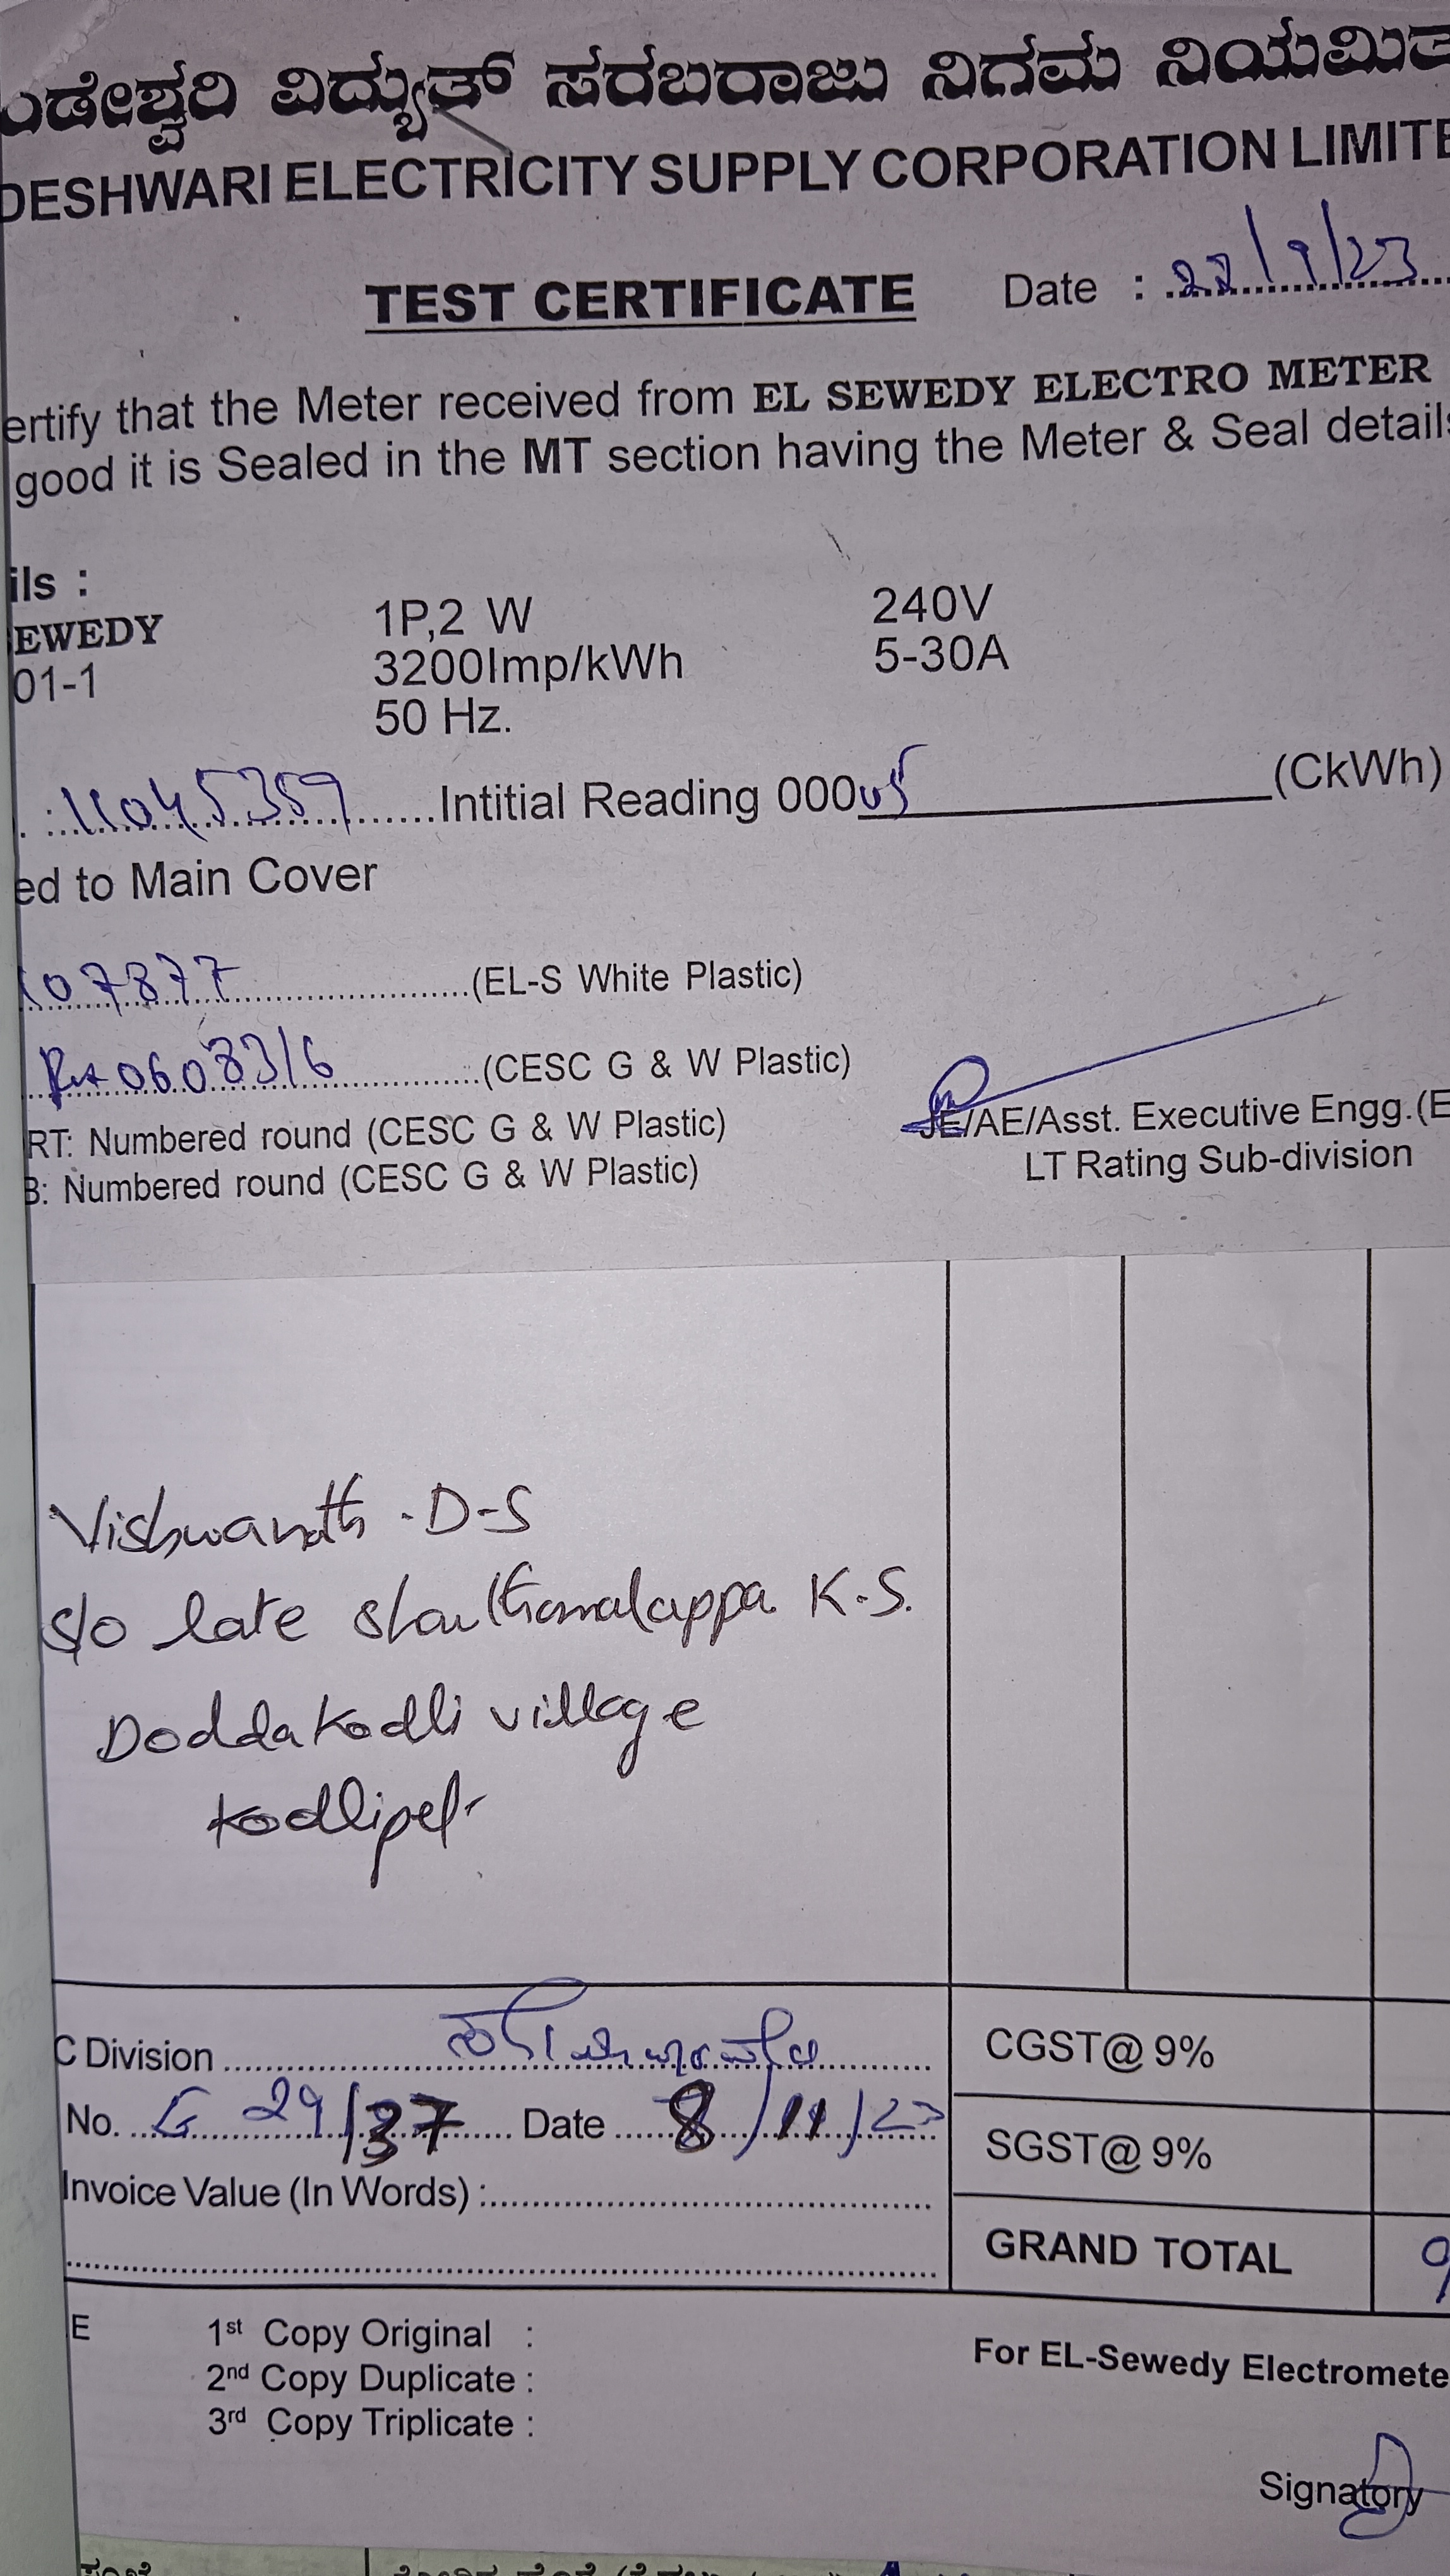 ಂಡೇಶ್ವರಿ ವಿದ್ಯುತ್ ಸರಬರಾಜು ನಿಗಮ ನಿಯಮಿತ
DESHWARI ELECTRICITY SUPPLY CORPORATION LIMITE
TEST CERTIFICATE Date : 22/9/23
ertify that the Meter received from EL SEWEDY ELECTRO METER
good it is Sealed in the MT section having the Meter & Seal details
ils :
EWEDY 1P,2 W 240V
01-1 3200Imp/kWh 5-30A
50 Hz.
. : 11045359 Intitial Reading 000 (CkWh)
ed to Main Cover
107877 (EL-S White Plastic)
0608316 (CESC G & W Plastic)
RT: Numbered round (CESC G & W Plastic) JE/AE/Asst. Executive Engg.(E
B: Numbered round (CESC G & W Plastic) LT Rating Sub-division
Vishwanath .D-S
S/o late K.S.
Doddakodli village
Kodlipet
C Division CGST@ 9%
No. G 29/37 Date 8/11/23
SGST@ 9%
Invoice Value (In Words) :
GRAND TOTAL 9
E 1st Copy Original :
2nd Copy Duplicate :
3rd Copy Triplicate :
For EL-Sewedy Electromete
Signatory